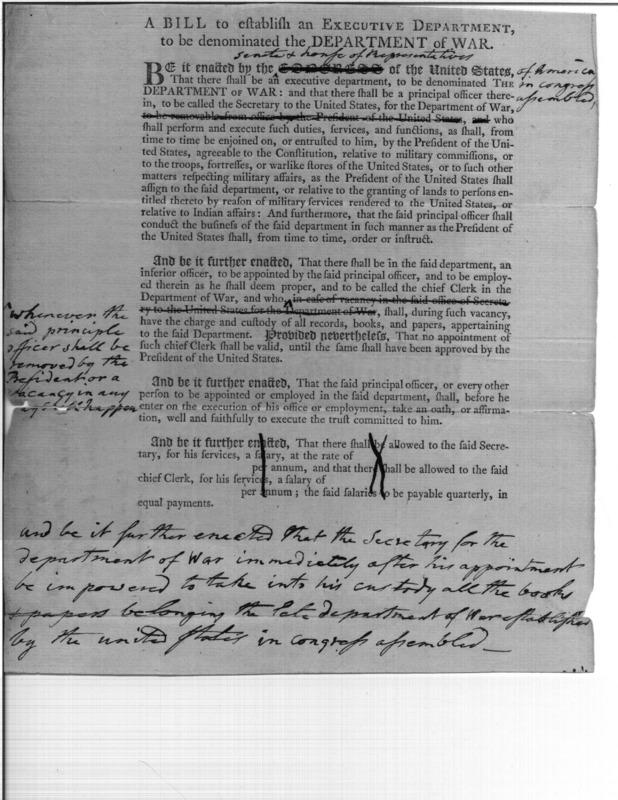 A BILL to eſtabliſh an EXECUTIVE DEPARTMENT,
to be denominated the DEPARTMENT of WAR.
senate & house of Representatives
BE it enacted by the CONGRESS of the United States, of America
in congress
assembled,
That there ſhall be an executive department, to be denominated THE
DEPARTMENT OF WAR: and that there ſhall be a principal officer there-
in, to be called the Secretary to the United States, for the Department of War,
to be removable from office by the Preſident of the United States, and who
ſhall perform and execute ſuch duties, ſervices, and functions, as ſhall, from
time to time be enjoined on, or entruſted to him, by the Preſident of the Uni-
ted States, agreeable to the Conſtitution, relative to military commiſſions, or
to the troops, fortreſſes, or warlike ſtores of the United States, or to ſuch other
matters reſpecting military affairs, as the Preſident of the United States ſhall
aſſign to the ſaid department, or relative to the granting of lands to perſons en-
titled thereto by reaſon of military ſervices rendered to the United States, or
relative to Indian affairs: And furthermore, that the ſaid principal officer ſhall
conduct the buſineſs of the ſaid department in ſuch manner as the Preſident of
the United States ſhall, from time to time, order or inſtruct.
And be it further enacted, That there ſhall be in the ſaid department, an
inferior officer, to be appointed by the ſaid principal officer, and to be employ-
ed therein as he ſhall deem proper, and to be called the chief Clerk in the
Department of War, and who, in caſe of vacancy in the ſaid office of Secreta-
ry to the United States for the Department of War, ſhall, during ſuch vacancy,
have the charge and cuſtody of all records, books, and papers, appertaining
to the ſaid Department. Provided nevertheleſs, That no appointment of
ſuch chief Clerk ſhall be valid, until the ſame ſhall have been approved by the
Preſident of the United States.
whenever the
said principle
officer shall be
removed by the
President or a
vacancy in any
happen
And be it further enacted, That the ſaid principal officer, or every other
perſon to be appointed or employed in the ſaid department, ſhall, before he
enter on the execution of his office or employment, take an oath, or affirma-
tion, well and faithfully to execute the truſt committed to him.
And be it further enacted, That there ſhall be allowed to the ſaid Secre-
tary, for his ſervices, a ſalary, at the rate of
per annum, and that there ſhall be allowed to the ſaid
chief Clerk, for his ſervices, a ſalary of
per annum; the ſaid ſalaries to be payable quarterly, in
equal payments.
and be it further enacted that the Secretary for the
department of War immediately after his appointment
be impowered to take into his custody all the books
& papers belonging the late department of War established
by the united States in congress assembled_